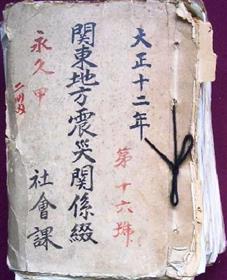 大正十二年
第十六號
関東地方震災関係綴
社會課
永久甲